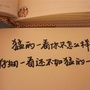 猛的一看你不怎么样
仔细一看还不如猛的一